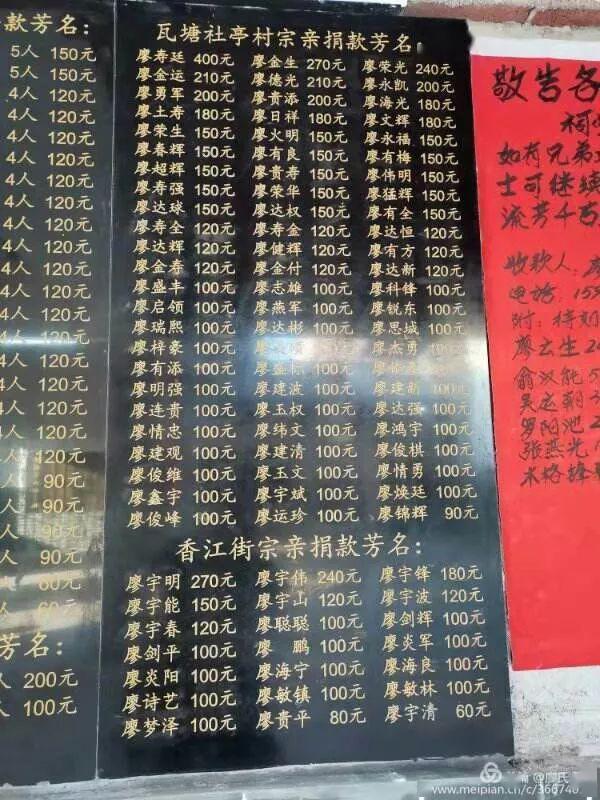 款芳名:
5人 150元
5人 150元
4人 120元
4人 120元
4人 120元
4人 120元
4人 120元
4人 120元
4人 120元
4人 120元
4人 120元
4人 120元
4人 120元
4人 120元
4人 120元
4人 120元
4人 120元
4人 120元
4人 120元
人 120元
人 90元
人 90元
人 90元
人 90元
60元
人 60元
芳名:
人 200元
人 100元
瓦塘社亭村宗亲捐款芳名:
廖寿廷 400元 廖金生 270元 廖荣光 240元
廖金运 210元 廖德光 210元 廖永凯 200元
廖勇军 200元 廖贵添 200元 廖海光 180元
廖土寿 180元 廖日祥 180元 廖文辉 180元
廖荣生 150元 廖火明 150元 廖永福 150元
廖春辉 150元 廖有良 150元 廖有梅 150元
廖超辉 150元 廖贵寿 150元 廖伟明 150元
廖寿强 150元 廖荣华 150元 廖猛辉 150元
廖达球 150元 廖达权 150元 廖有全 150元
廖寿全 120元 廖寿金 120元 廖达恒 120元
廖达辉 120元 廖健辉 120元 廖有方 120元
廖金寿 120元 廖金付 120元 廖达新 120元
廖盛丰 100元 廖志雄 100元 廖科锋 100元
廖启领 100元 廖燕军 100元 廖锐东 100元
廖瑞熙 100元 廖达彬 100元 廖思域 100元
廖梓豪 100元 廖 100元 廖杰勇 100元
廖有添 100元 廖盛标 100元 廖 100元
廖明强 100元 廖建波 100元 廖建新 100元
廖连贵 100元 廖玉权 100元 廖达强 100元
廖情忠 100元 廖纬文 100元 廖鸿宇 100元
廖建观 100元 廖建清 100元 廖俊棋 100元
廖俊维 100元 廖玉文 100元 廖情勇 100元
廖鑫宇 100元 廖宇斌 100元 廖焕廷 100元
廖俊峰 100元 廖运珍 100元 廖锦辉 90元
香江街宗亲捐款芳名:
廖宇明 270元 廖宇伟 240元 廖宇锋 180元
廖宇能 150元 廖宇山 120元 廖宇波 120元
廖宇春 120元 廖聪聪 100元 廖剑辉 100元
廖剑平 100元 廖 鹏 100元 廖炎军 100元
廖炎阳 100元 廖海宁 100元 廖海良 100元
廖诗艺 100元 廖敏镇 100元 廖敏林 100元
廖梦泽 100元 廖贵平 80元 廖宇清 60元
敬告各
祠
如有兄弟
士可继续
流芳千百
收款人:廖
电话:159
附:待刻
廖云生 2
俞汉能 5
吴应朝 3
罗阳池 2
张燕光
米格锋
@廖氏
www.meipian.cn/c/366740